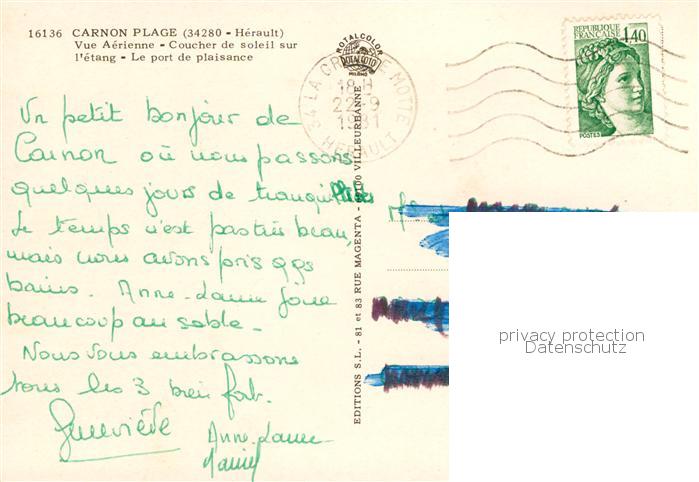 16136 CARNON PLAGE (34280 - Hérault)
Vue Aérienne - Coucher de soleil sur
l'étang - Le port de plaisance
ROTALCOLOR
ROTALFOTO
MILANO
34 LA GRANDE MOTTE
18 H
22-9
1981
HERAULT
REPUBLIQUE
FRANÇAISE
1,40
POSTES
Un petit bonjour de
Carnon où nous passons
quelques jours de tranquillités
Le temps n'est pas très beau,
mais nous avons pris qqs
bains. Anne-Laure joue
beaucoup au sable.
Nous vous embrassons
tous les 3 bien fort.
Geneviève
Anne-Laure
EDITIONS S.L. - 81 et 83 RUE MAGENTA - 69100 VILLEURBANNE
privacy protection
Datenschutz